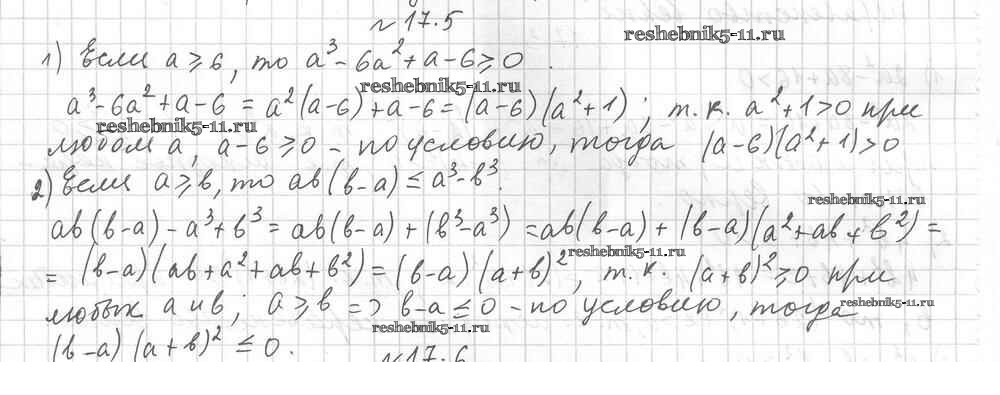 №17.5
reshebnik5-11.ru
1) Если a ≥ 6, то a³ - 6a² + a - 6 ≥ 0.
reshebnik5-11.ru
a³ - 6a² + a - 6 = a²(a - 6) + a - 6 = (a - 6)(a² + 1); т.к. a² + 1 > 0 при
reshebnik5-11.ru
любом a, a - 6 ≥ 0 - по условию, тогда (a - 6)(a² + 1) > 0
2) Если a ≥ b, то ab(b - a) ≤ a³ - b³.
reshebnik5-11.ru
ab(b - a) - a³ + b³ = ab(b - a) + (b³ - a³) = ab(b - a) + (b - a)(a² + ab + b²) =
reshebnik5-11.ru
= (b - a)(ab + a² + ab + b²) = (b - a)(a + b)², т.к. (a + b)² ≥ 0 при
любых a и b; a ≥ b => b - a ≤ 0 - по условию, тогда
reshebnik5-11.ru
reshebnik5-11.ru
(b - a)(a + b)² ≤ 0.
№17.6